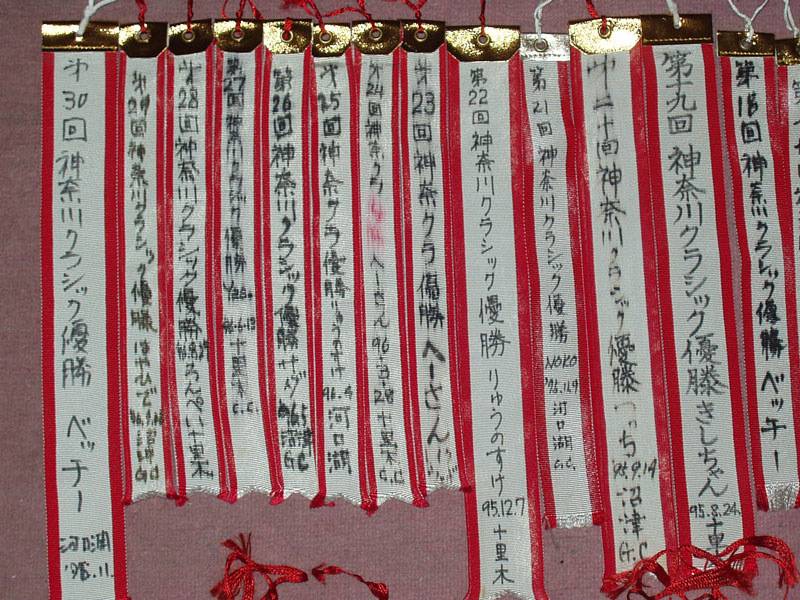 第30回 神奈川クラシック優勝 ベッチー
河口湖
'96.11.
第29回神奈川クラシック優勝 はやひで
第28回 神奈川クラシック優勝 ろんぺい 十里木
第27回神奈川クラシック優勝
十里木
C.C.
第26回 神奈川クラシック優勝
沼津
G.C
第25回 神奈クラ優勝 りゅうのすけ
96.4
河口湖
第24回神奈クラ
へーさん
96-3-28 十里木
C.C
第23回 神奈クラ優勝 へーさん
第22回 神奈川クラシック優勝 りゅうのすけ
95.12.7
十里木
第21回 神奈川クラシック優勝 NOKO
'95.11.9
河口湖
G.C.
第二十回 神奈川クラシック優勝
'95.9.14
沼津
G.C
第十九回 神奈川クラシック優勝 きしちゃん
95.8.24.
十里
第18回 神奈川クラシック優勝 ベッチー